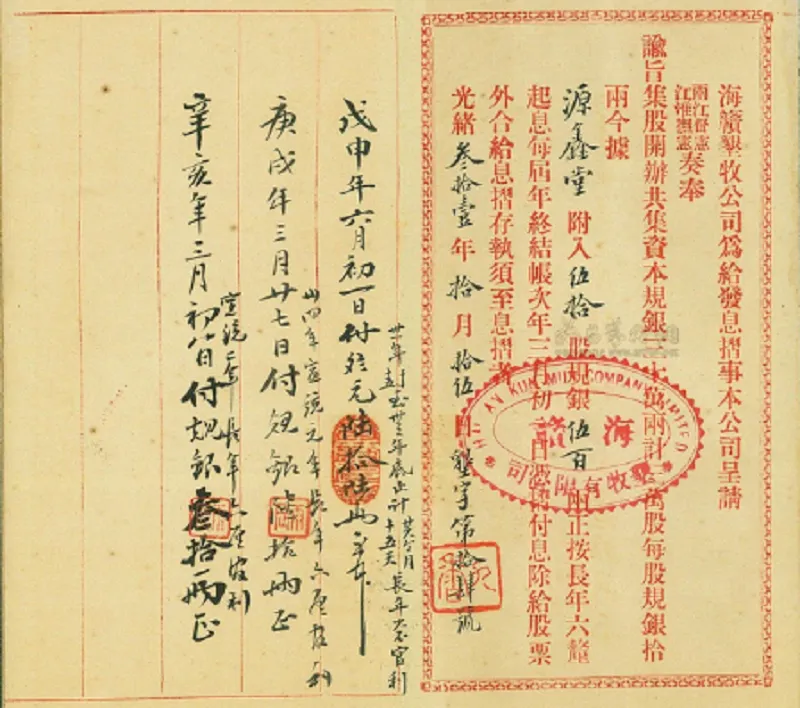 海贛墾牧公司為給發息摺事本公司呈請
兩江督憲
江淮撫憲
奏奉
諭旨集股開辦共集資本規銀三十萬兩計三萬股每股規銀拾
兩今據
源鑫堂附入伍拾股規銀伍百兩正按長年六釐
起息每屆年終結帳次年三月初一日憑摺付息除給股票
外合給息摺存執須至息摺者
光緒叁拾壹年拾月拾伍日墾字第拾肆號
HAI KUN MUH COMPANY LIMITED
海贛
墾牧有限公司
戊申年六月初一日付規元陸拾陸兩
庚戌年三月廿七日付規銀陸拾兩正
卅四年宣統元年長年六厘官利
辛亥年三月初八日付規銀叁拾兩正
宣統二年長年六厘官利